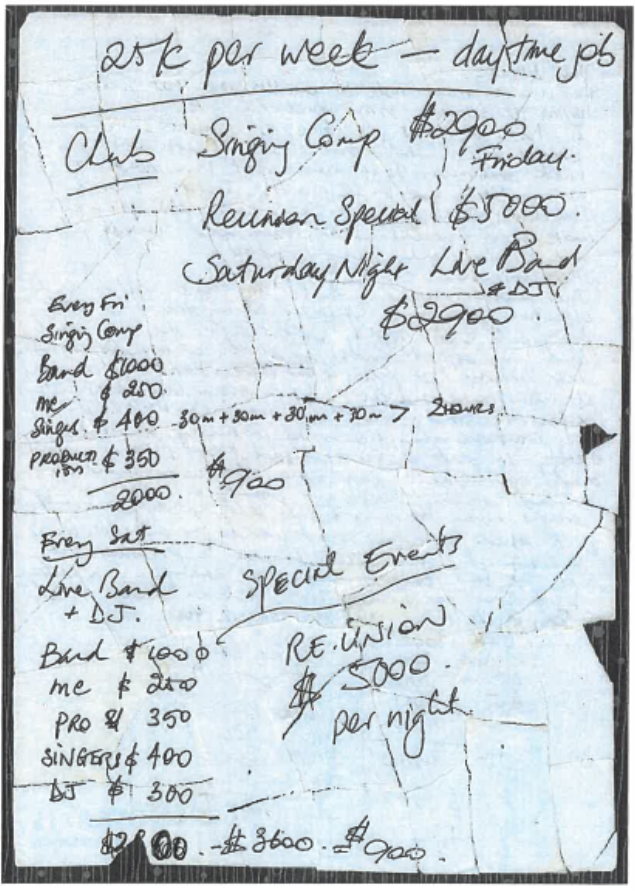 25K per week - daytime job
Club Singing Comp $2900
Friday.
Reunion Special $5000.
Saturday Night Live Band
& DJ.
$2900
Every Fri
Singing Comp
Band $1000
me $ 250.
Singer $ 400 30m + 30m + 30m + 30m > 2HOURS
PRODUCTION $ 350
2000. $900
Every Sat
Live Band
+ DJ.
Band $ 1000
me $ 250
PRO $ 350
SINGERS $ 400
DJ $ 300
- $ 3600. = $900.
SPECIAL Events
RE.UNION
$ 5000.
per night